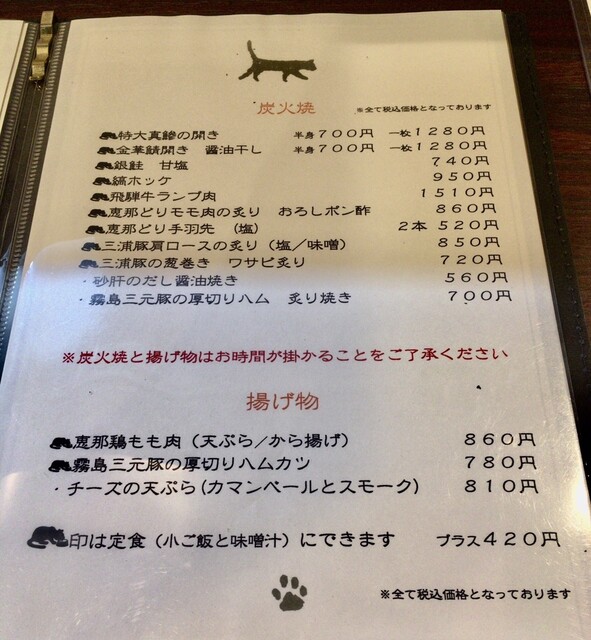 炭火焼 ※全て税込価格となっております
特大真鰺の開き 半身700円 一枚1280円
金華鯖開き 醤油干し 半身700円 一枚1280円
銀鮭 甘塩 740円
縞ホッケ 950円
飛騨牛ランプ肉 1510円
恵那どりモモ肉の炙り おろしポン酢 860円
恵那どり手羽先 (塩) 2本 520円
三浦豚肩ロースの炙り(塩/味噌) 850円
三浦豚の葱巻き ワサビ炙り 720円
・砂肝のだし醤油焼き 560円
・霧島三元豚の厚切りハム 炙り焼き 700円
※炭火焼と揚げ物はお時間が掛かることをご了承ください
揚げ物
恵那鶏もも肉(天ぷら/から揚げ) 860円
霧島三元豚の厚切りハムカツ 780円
・チーズの天ぷら(カマンベールとスモーク) 810円
印は定食(小ご飯と味噌汁)にできます プラス420円
※全て税込価格となっております